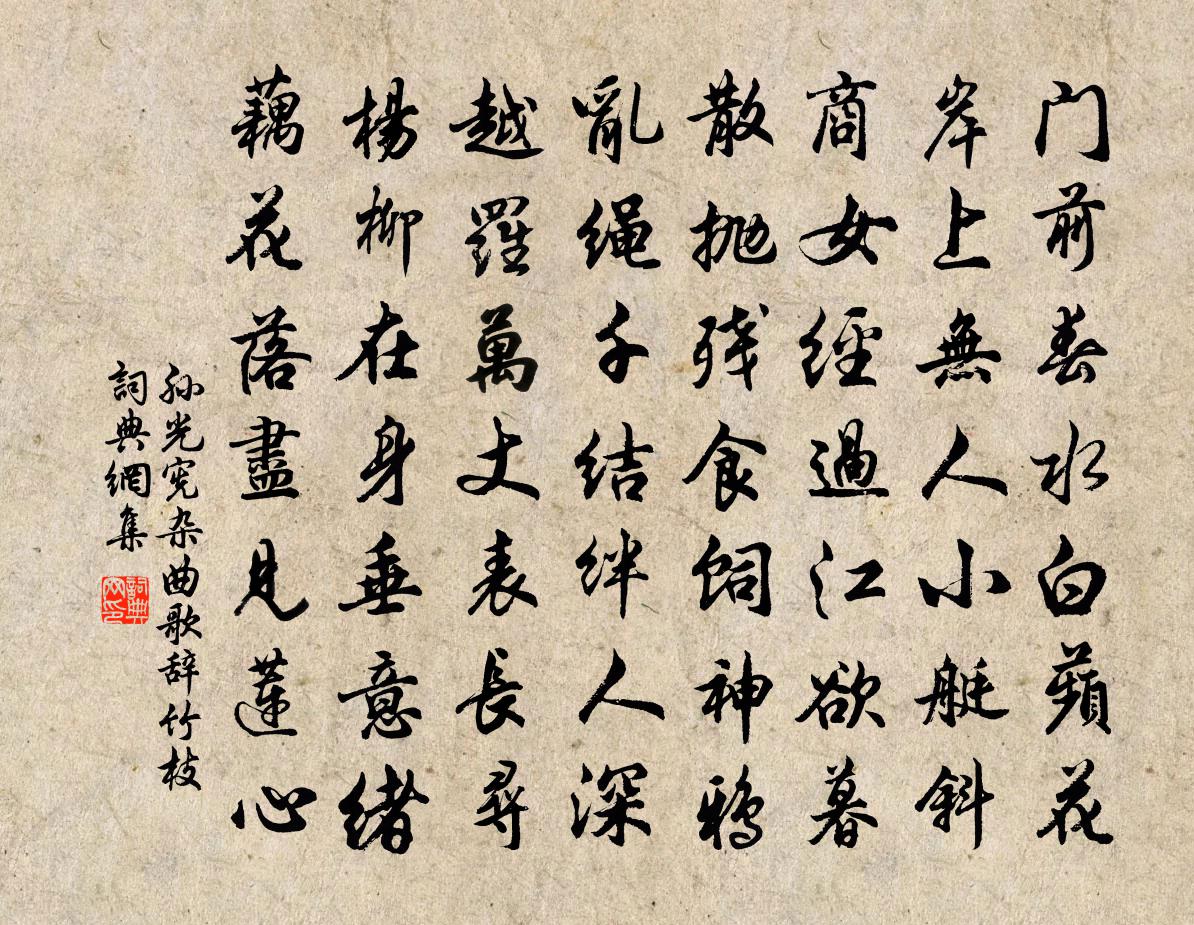 门前春水白蘋花
岸上無人小艇斜
商女經過江欲暮
散抛残食飼神鴉
亂繩千结絆人深
越羅萬丈表長尋
楊柳在身垂意緒
藕花落盡見蓮心
孙光宪杂曲歌辞竹枝
詞典網集
詞典
网印